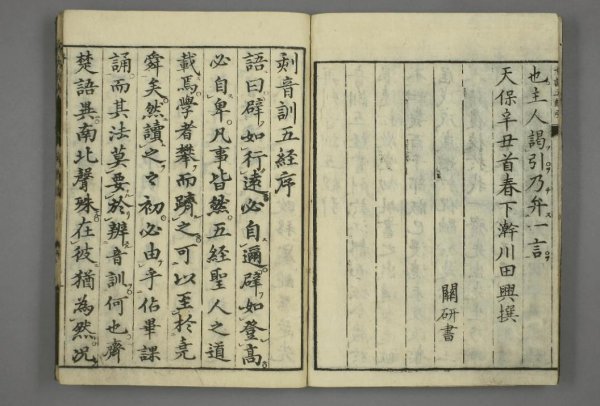 也主人謁引乃弁一言
天保辛丑首春下澣川田興撰
關研書
刻音訓五經序
語曰辟如行遠必自邇辟如登高
必自卑凡事皆然五經聖人之道
載焉學者攀而躋之可以至於堯
舜矣然讀之之初必由手佔畢課
誦而其法莫要於辨音訓何也齊
楚語異南北聲殊在彼猶為然況